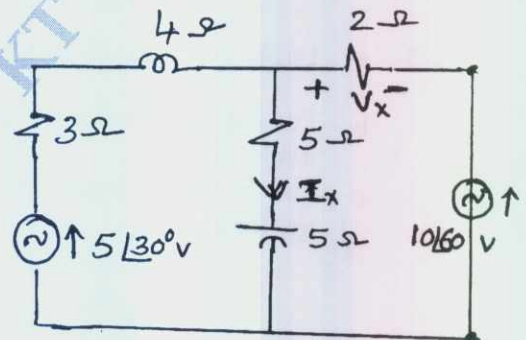 KT
4 Ω 2 Ω
+ Vx -
3 Ω 5 Ω
Ix
5 Ω
↑ 5∠30° v 10∠60 v ↑